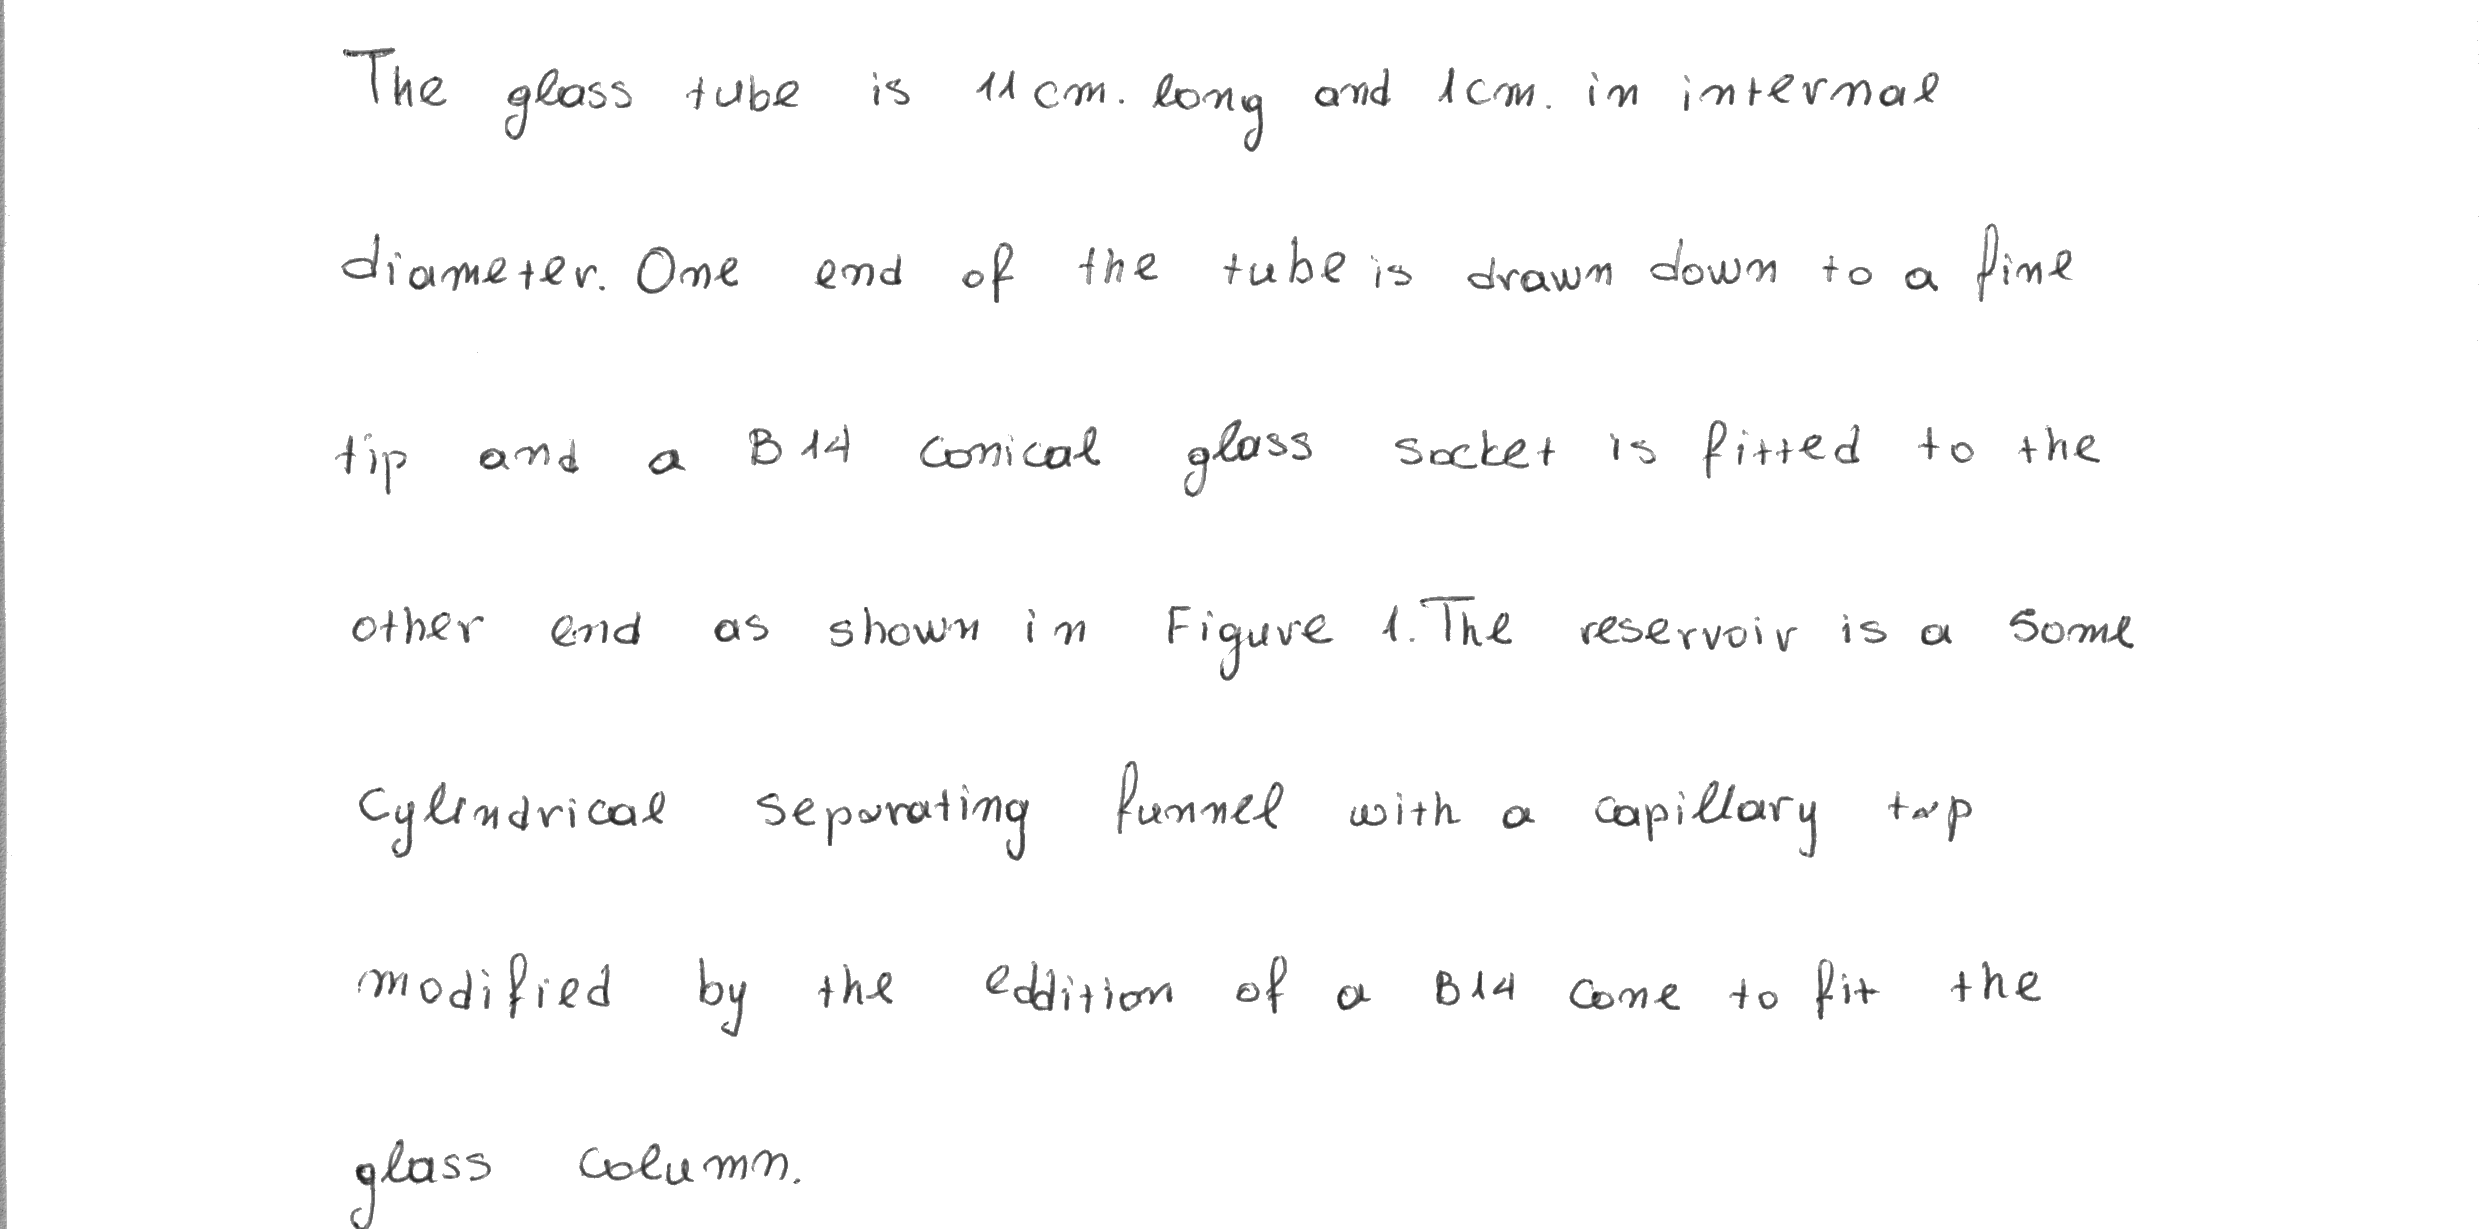 The glass tube is 11 cm. long and 1cm. in internal
diameter. One end of the tube is drawn down to a fine
tip and a B14 conical glass socket is fitted to the
other end as shown in Figure 1. The reservoir is a Some
Cylindrical separating funnel with a capillary tap
modified by the eddition of a B14 cone to fit the
glass column.